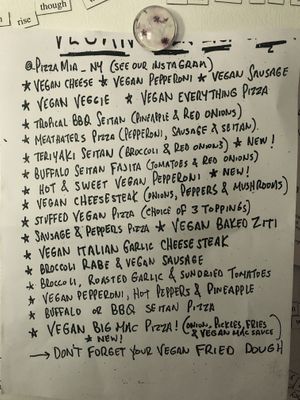 though
rise
VEGAN
@PIZZAMIA_NY (SEE OUR INSTAGRAM)
★ VEGAN CHEESE ★ VEGAN PEPPERONI ★ VEGAN SAUSAGE
★ VEGAN VEGGIE ★ VEGAN EVERYTHING PIZZA
★ TROPICAL BBQ SEITAN (PINEAPPLE & RED ONIONS)
★ MEATHATERS PIZZA (PEPPERONI, SAUSAGE & SEITAN)
★ TERIYAKI SEITAN (BROCCOLI & RED ONIONS) ★ NEW!
★ BUFFALO SEITAN FAJITA (TOMATOES & RED ONIONS)
★ HOT & SWEET VEGAN PEPPERONI ★ NEW!
★ VEGAN CHEESESTEAK (ONIONS, PEPPERS & MUSHROOMS)
★ STUFFED VEGAN PIZZA (CHOICE OF 3 TOPPINGS)
★ SAUSAGE & PEPPERS PIZZA ★ VEGAN BAKED ZITI
★ VEGAN ITALIAN GARLIC CHEESESTEAK
★ BROCCOLI RABE & VEGAN SAUSAGE
★ BROCCOLI, ROASTED GARLIC & SUNDRIED TOMATOES
★ VEGAN PEPPERONI, HOT PEPPERS & PINEAPPLE
★ BUFFALO OR BBQ SEITAN PIZZA
★ VEGAN BIG MAC PIZZA! (ONION, PICKLES, FRIES & VEGAN MAC SAUCE)
★ NEW!
→ DON'T FORGET YOUR VEGAN FRIED DOUGH